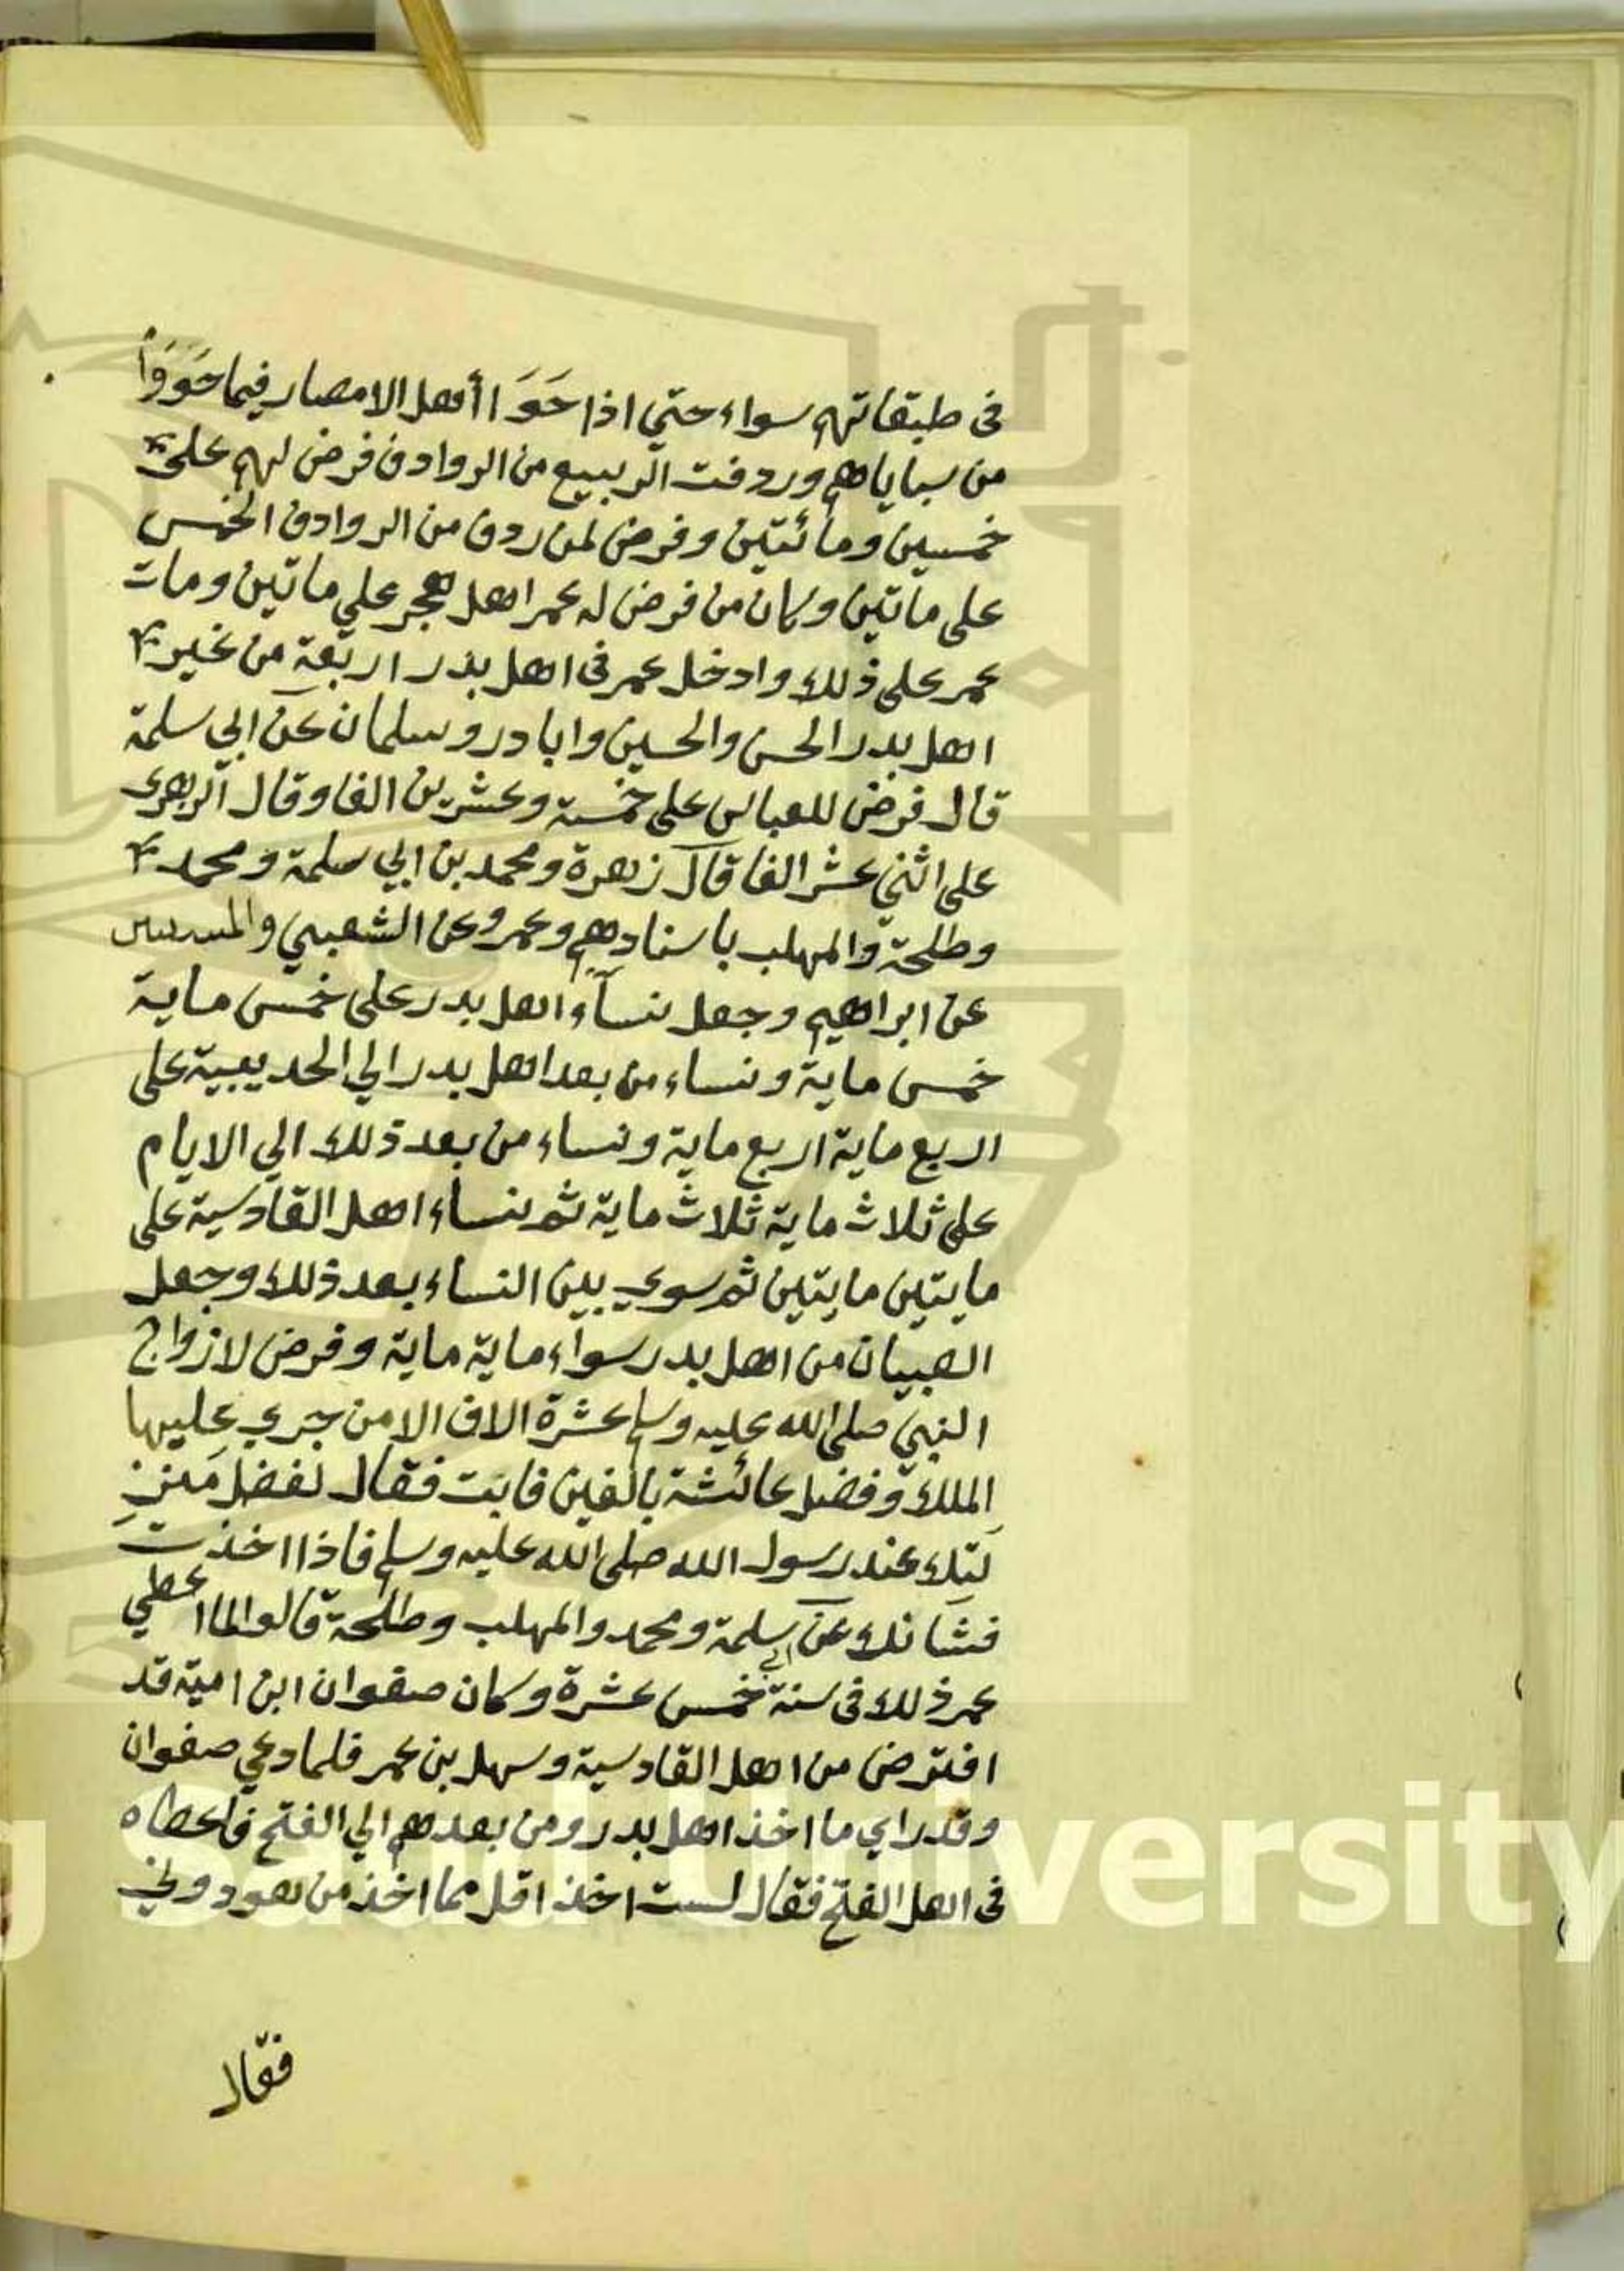 فى طبقاتهم سواء حتي اذا حَوَ ا أهل الامصار فيما حَوَوْا
من سباياهم وردفت الربيع من الروادف فرض لهم على
خمسين ومائتين وفرض لمن ردف من الروادف الخمس
على ماتين وكان من فرض له عمر اهل هجر علي ماتين ومات
عمر على ذلك وادخل عمر فى اهل بدر اربعة من غير
اهل بدر الحسن والحسين وابا در وسلمان عن ابي سلمة
قال فرض للعباس على خمسة وعشرين الفا وقال الزهرى
على اثني عشر الفا قال زهرة ومحمد بن ابي سلمة ومحمد
وطلحة والمهلب باسنادهم وعمرو عن الشعبي والمستنير
عن ابراهيم وجعل نسآء اهل بدر على خمس ماية
خمس ماية ونساء من بعد اهل بدر الي الحديبية على
اربع ماية اربع ماية ونساء من بعد ذلك الي الايام
على ثلاث ماية ثلاث ماية ثم نساء اهل القادسية على
مايتين مايتين ثم سوي بين النساء بعد ذلك وجعل
الصبيان من اهل بدر سواء ماية ماية وفرض لازواج
النبي صلى الله عليه وسلم عشرة الاف الا من جري عليها
الملك وفضل عائشة بالفين فابت فقال لفضل منز
لتك عند رسول الله صلى الله عليه وسلم فاذا اخذت
فشانك عن ابي سلمة ومحمد والمهلب وطلحة قالوا لما اعطي
عمر ذلك فى سنة خمس عشرة وكان صفوان ابن امية قد
افترض من اهل القادسية وسهل بن عمر فلما دعي صفوان
وقد راي ما اخذ اهل بدر ومن بعدهم الي الفتح فاعطاه
فى اهل الفتح فقال لست اخذ اقل مما اخذ من هو دوني
فقال